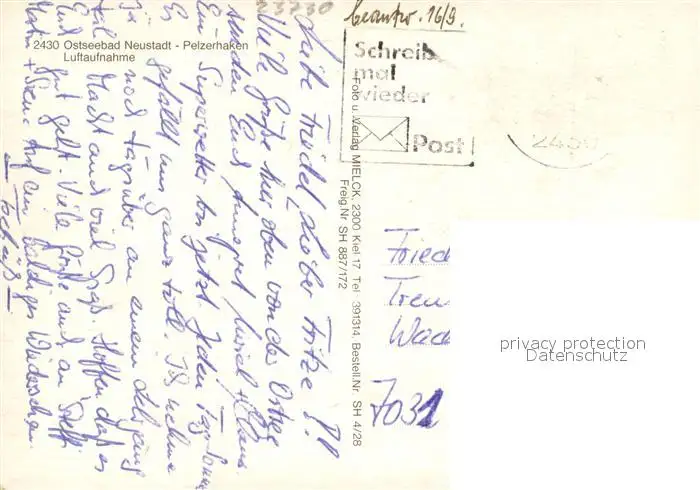 23730
beantw. 16/9.
2430 Ostseebad Neustadt - Pelzerhaken
Luftaufnahme
Schreib
mal
wieder
Post
2430
Foto u. Verlag MIELCK, 2300 Kiel 17 Tel. 391314, Bestell.Nr. SH 4/28
Freig.Nr SH 887/172
Liebe Friedel, Lieber Fritze!
Viele Grüße hier oben von der Ostsee
senden Euch
Ein Superwetter bis jetzt. Jeden Tag Sonne
Es gefällt uns ganz toll. Ich nehme
ja noch tagsüber an einem Lehrgang
teil. Macht auch viel Spaß. Hoffen, daß es
Euch gut geht. Viele Grüße auch an
Auf ein baldiges Wiedersehen.
— Tschüß —
Fried
Wad
7031
privacy protection
Datenschutz